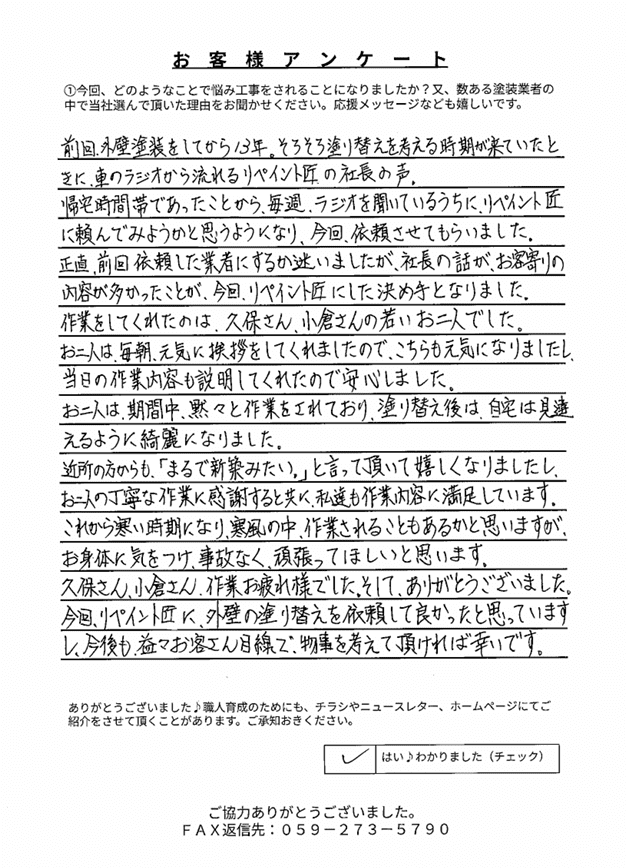 お客様アンケート
①今回、どのようなことで悩み工事をされることになりましたか？又、数ある塗装業者の
中で当社選んで頂いた理由をお聞かせください。応援メッセージなども嬉しいです。
前回、外壁塗装をしてから13年。そろそろ塗り替えを考える時期が来ていたと
きに、車のラジオから流れるリペイント匠の社長の声。
帰宅時間帯であったことから、毎週、ラジオを聞いているうちに、リペイント匠
に頼んでみようかと思うようになり、今回、依頼させてもらいました。
正直、前回依頼した業者にするか迷いましたが、社長の話が、お客寄りの
内容が多かったことが、今回、リペイント匠にした決め手となりました。
作業をしてくれたのは、久保さん、小倉さんの若いお二人でした。
お二人は、毎朝、元気に挨拶をしてくれましたので、こちらも元気になりましたし、
当日の作業内容も説明してくれたので安心しました。
お二人は、期間中、黙々と作業をされており、塗り替え後は、自宅は見違
えるように綺麗になりました。
近所の方からも、「まるで新築みたい。」と言って頂いて嬉しくなりましたし、
お二人の丁寧な作業に感謝すると共に、私達も作業内容に満足しています。
これから寒い時期になり、寒風の中、作業されることもあるかと思いますが、
お身体に気をつけ、事故なく、頑張ってほしいと思います。
久保さん、小倉さん、作業お疲れ様でした。そして、ありがとうございました。
今回、リペイント匠に、外壁の塗り替えを依頼して良かったと思っています
し、今後も、益々お客さん目線で、物事を考えて頂ければ幸いです。
ありがとうございました♪職人育成のためにも、チラシやニュースレター、ホームページにてご
紹介をさせて頂くことがあります。ご承知おきください。
はい♪わかりました（チェック）
ご協力ありがとうございました。
ＦＡＸ返信先：０５９－２７３－５７９０